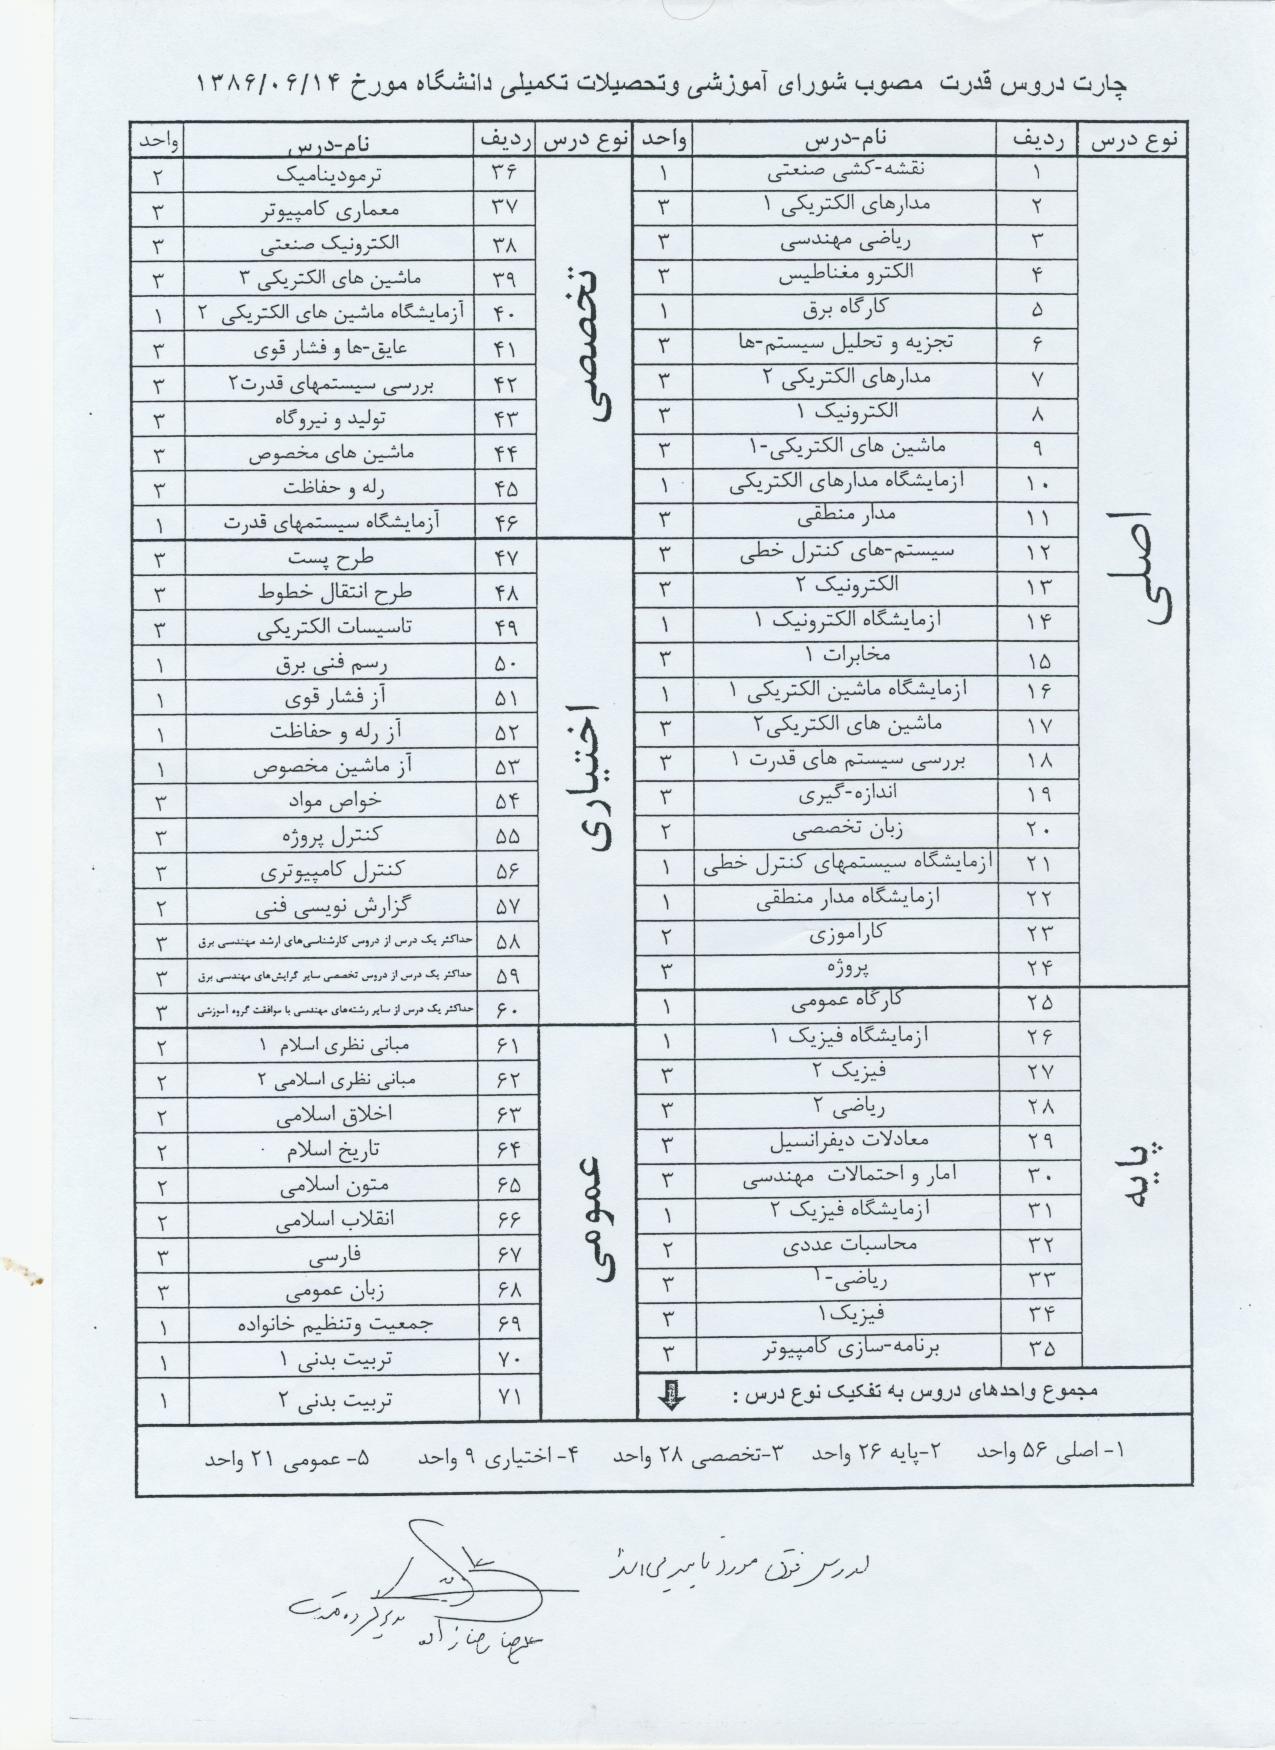 چارت دروس قدرت مصوب شورای آموزشی وتحصیلات تکمیلی دانشگاه مورخ ۱۳۸۶/۰۶/۱۴
نوع درس ردیف نام-درس واحد
اصلی
۱ نقشه-کشی صنعتی ۱
۲ مدارهای الکتریکی ۱ ۳
۳ ریاضی مهندسی ۳
۴ الکترو مغناطیس ۳
۵ کارگاه برق ۱
۶ تجزیه و تحلیل سیستم-ها ۳
۷ مدارهای الکتریکی ۲ ۳
۸ الکترونیک ۱ ۳
۹ ماشین های الکتریکی-۱ ۳
۱۰ ازمایشگاه مدارهای الکتریکی ۱
۱۱ مدار منطقی ۳
۱۲ سیستم-های کنترل خطی ۳
۱۳ الکترونیک ۲ ۳
۱۴ ازمایشگاه الکترونیک ۱ ۱
۱۵ مخابرات ۱ ۳
۱۶ ازمایشگاه ماشین الکتریکی ۱ ۱
۱۷ ماشین های الکتریکی۲ ۳
۱۸ بررسی سیستم های قدرت ۱ ۳
۱۹ اندازه-گیری ۳
۲۰ زبان تخصصی ۲
۲۱ ازمایشگاه سیستمهای کنترل خطی ۱
۲۲ ازمایشگاه مدار منطقی ۱
۲۳ کاراموزی ۲
۲۴ پروژه ۳
پایه
۲۵ کارگاه عمومی ۱
۲۶ ازمایشگاه فیزیک ۱ ۱
۲۷ فیزیک ۲ ۳
۲۸ ریاضی ۲ ۳
۲۹ معادلات دیفرانسیل ۳
۳۰ امار و احتمالات مهندسی ۳
۳۱ ازمایشگاه فیزیک ۲ ۱
۳۲ محاسبات عددی ۲
۳۳ ریاضی-۱ ۳
۳۴ فیزیک۱ ۳
۳۵ برنامه-سازی کامپیوتر ۳
مجموع واحدهای دروس به تفکیک نوع درس :
نوع درس ردیف نام-درس واحد
تخصصی
۳۶ ترمودینامیک ۲
۳۷ معماری کامپیوتر ۳
۳۸ الکترونیک صنعتی ۳
۳۹ ماشین های الکتریکی ۳ ۳
۴۰ آزمایشگاه ماشین های الکتریکی ۲ ۱
۴۱ عایق-ها و فشار قوی ۳
۴۲ بررسی سیستمهای قدرت۲ ۳
۴۳ تولید و نیروگاه ۳
۴۴ ماشین های مخصوص ۳
۴۵ رله و حفاظت ۳
۴۶ آزمایشگاه سیستمهای قدرت ۱
اختیاری
۴۷ طرح پست ۳
۴۸ طرح انتقال خطوط ۳
۴۹ تاسیسات الکتریکی ۳
۵۰ رسم فنی برق ۱
۵۱ آز فشار قوی ۱
۵۲ آز رله و حفاظت ۱
۵۳ آز ماشین مخصوص ۱
۵۴ خواص مواد ۳
۵۵ کنترل پروژه ۳
۵۶ کنترل کامپیوتری ۳
۵۷ گزارش نویسی فنی ۲
۵۸ حداکثر یک درس از دروس کارشناسی‌های ارشد مهندسی برق ۳
۵۹ حداکثر یک درس از دروس تخصصی سایر گرایش‌های مهندسی برق ۳
۶۰ حداکثر یک درس از سایر رشته‌های مهندسی با موافقت گروه آموزشی ۳
عمومی
۶۱ مبانی نظری اسلام ۱ ۲
۶۲ مبانی نظری اسلامی ۲ ۲
۶۳ اخلاق اسلامی ۲
۶۴ تاریخ اسلام ۲
۶۵ متون اسلامی ۲
۶۶ انقلاب اسلامی ۲
۶۷ فارسی ۳
۶۸ زبان عمومی ۳
۶۹ جمعیت وتنظیم خانواده ۱
۷۰ تربیت بدنی ۱ ۱
۷۱ تربیت بدنی ۲ ۱
۱- اصلی ۵۶ واحد ۲-پایه ۲۶ واحد ۳-تخصصی ۲۸ واحد ۴- اختیاری ۹ واحد ۵- عمومی ۲۱ واحد
فوق مورد تایید می‌باشد
علیرضا رضازاده
مدیر گروه قدرت